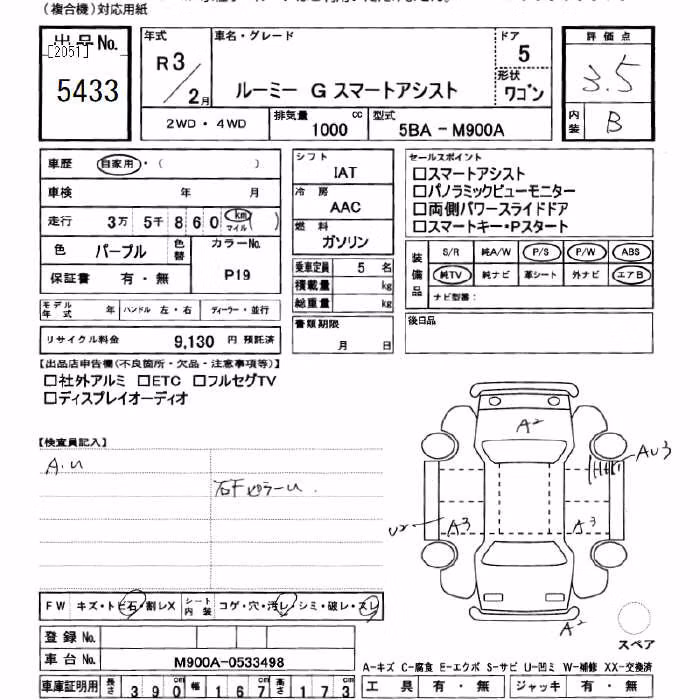 (複合機)対応用紙
出品No.
[2051]
5433
年式
R3/2月
車名・グレード
ルーミー G スマートアシスト
ドア
5
形状
ワゴン
評価点
3.5
内装
B
2WD・4WD
排気量 1000 cc
型式 5BA-M900A
車歴 自家用・( )
車検 年 月
走行 3万 5千 8 6 0 km マイル ( )
色 パープル 色替
カラーNo. P19
保証書 有・無
モデル年式 年 ハンドル 左・右 ディーラー・並行
リサイクル料金 9,130 円 預託済
シフト
IAT
冷房
AAC
燃料
ガソリン
乗車定員 5 名
積載量 kg
総重量 kg
書類期限
月 日
セールスポイント
□スマートアシスト
□パノラミックビューモニター
□両側パワースライドドア
□スマートキー・Pスタート
装備品
S/R 純A/W P/S P/W ABS
純TV 純ナビ 革シート 外ナビ エアB
ナビ型番:
後日品
【出品店申告欄(不良箇所・欠品・注意事項等)】
□社外アルミ □ETC □フルセグTV
□ディスプレイオーディオ
【検査員記入】
A.U
右Fピラーu.
A2
AU3
U2
A3
A3
A2
スペア
FW キズ・トビ石・割レX シート内装 コゲ・穴・汚レ・シミ・破レ・スレ
登録No.
車台No. M900A-0533498
A-キズ C-腐食 E-エクボ S-サビ U-凹ミ W-補修 XX-交換済
車庫証明用 長さ 390cm 幅 167cm 高さ 173cm
工具 有・無 ジャッキ 有・無